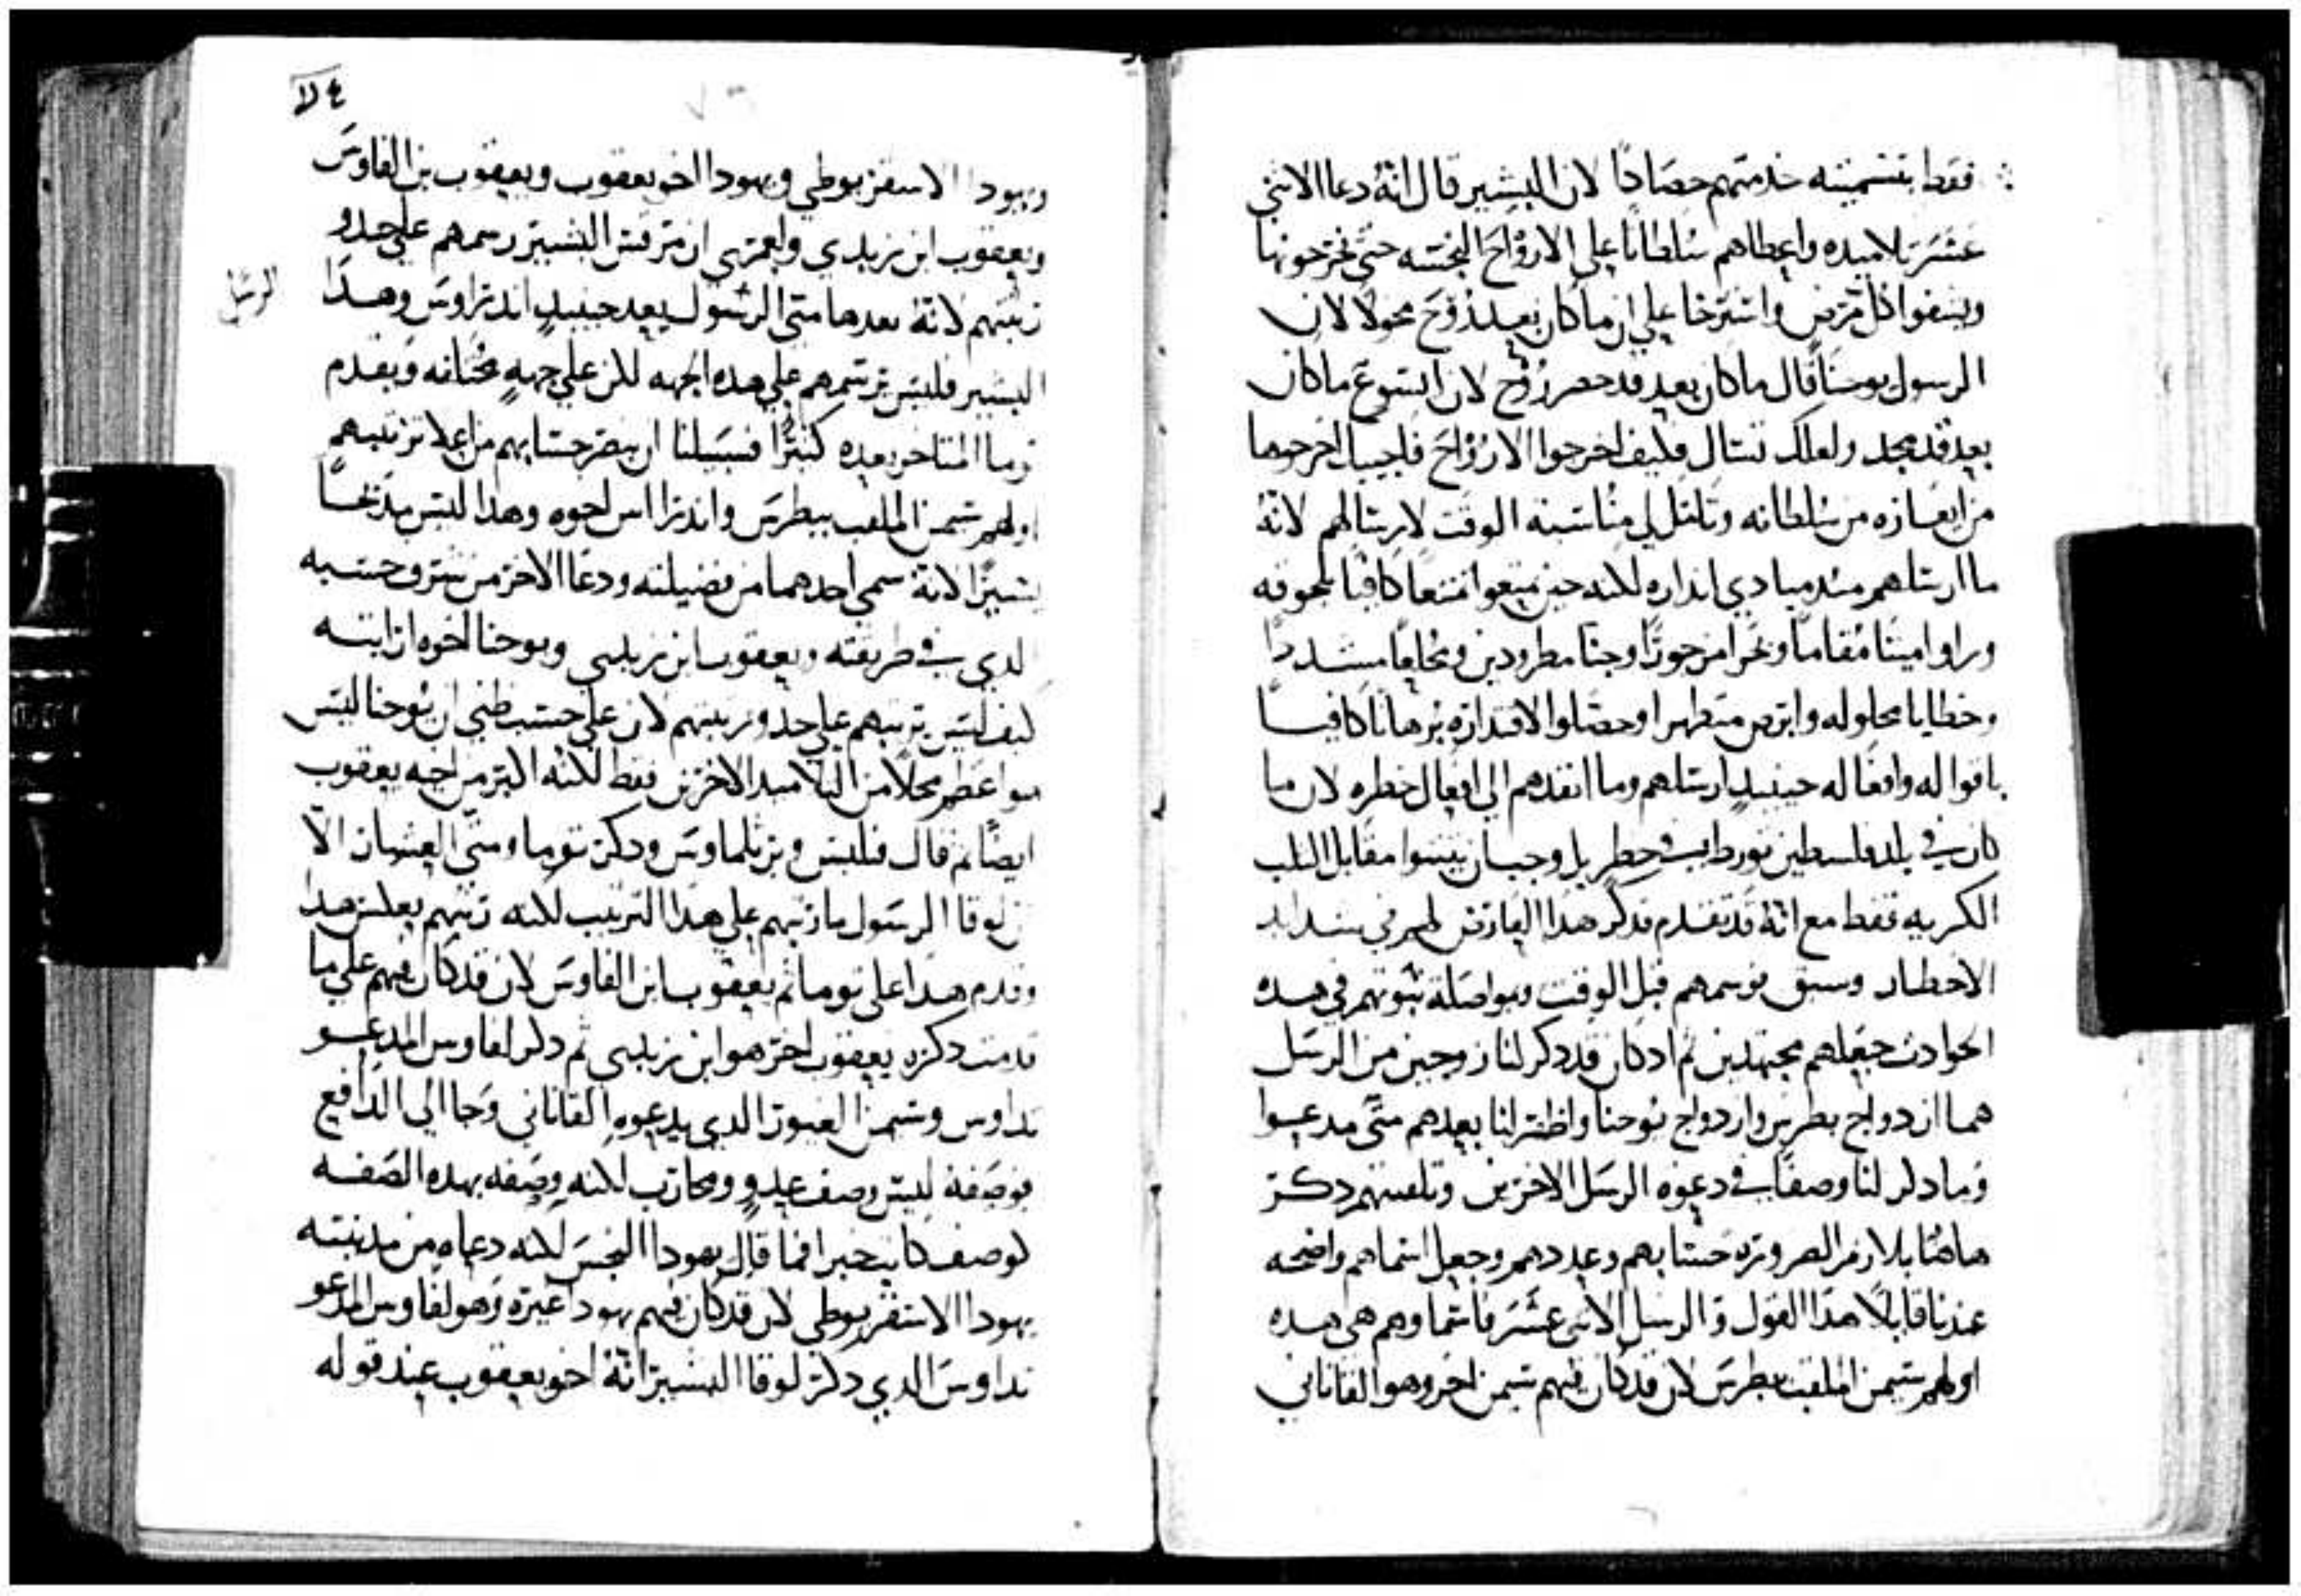 فقط بتسميته خدمتهم حصادًا لان البشير قال انه دعا الاثني
عشر تلاميده واعطاهم سلطانًا على الارواح النجسه حتى يخرجونها
ويشفوا كل مرض واسترخا علي ان ما كان بعد روح محولا لان
الرسول يوحنا قال ما كان بعد قد حضر روح لان ايسوع ما كان
بعد قد مجد ولعلك تسال فكيف اخرجوا الارواح فاجيبك اخرجوها
من ايعازه من سلطانه وتامل لي مناسبة الوقت لارسالهم لانه
ما ارسلهم مند مبادي انداره لكنه حين تمتعوا تمتعًا كافيًا بلحوقه
وراوا ميتًا مقامًا وبحرا مزجورًا وجنا مطرودين ومخلعًا مشددًا
وخطايا محلوله وابرص متطهرا وحصلوا لاقتداره برهانًا كافيًا
باقواله وافعاله حينيدٍ ارسلهم وما انفدهم الي افعال خطره لان ما
كان في بلد فلسطين تورط في خطر بل وجب ان يتبتوا مقابل الثلب
الكريه فقط مع انه قد تقدم فدكر هدا العارض لهم في شدايد
الاخطار وسبق توسمهم قبل الوقت وبمواصلة نبوتهم في هده
الحوادث جعلهم مجتهدين ثم اد كان قد دكر لنا زوجين من الرسل
هما ازدواج بطرس وازدواج يوحنا واظهر لنا بعدهم متى مدعوا
وما دكر لنا وصفًا في دعوه الرسل الاخرين وتلقيبهم دكر
هاهنا بلازم الضروره حسابهم وعددهم وجعل اسماهم واضحه
عندنا قايلًا هدا القول والرسل الاثني عشر فاسماوهم هي هده
اولهم شمعن الملقب بطرس لان قد كان فيهم شمعن اخر وهو القاناني
ع لا
ويهودا الاسقريوطي ويهودا اخو يعقوب ويعقوب بن الفاوس
ويعقوب ابن زبدي ولعمري ان مرقس البشير رسمهم علي حدو
رتبتهم لانه بعد هامتي الرسول يعد حينيدٍ اندراوس وهدا
الرسل
البشير فليس يرسمهم علي هده الجهه لكن علي جهةٍ مختلفه ويقدم
توما المتاخر بعده كثيرًا فسبيلنا ان ننظر حسابهم من اعلا ترتيبهم
اولهم شمعن الملقب ببطرس واندراس اخوه وهدا ليس مديحًا
يسيرًا لانه سمى احدهما من فضيلته ودعا الاخر من شرف حسبه
الدي في طريقته ويعقوب ابن زبدي ويوحنا اخوه ارايته
كيف ليس يرتبهم علي حدو رتبتهم لان علي حسب ظني ان يوحنا ليس
هو اعظم محلًا من التلاميد الاخرين فقط لكنه اكبر من اخيه يعقوب
ايضًا ثم قال فيلبس وبرتلماوس ودكر توما ومتي العشار الا
ان لوقا الرسول ما رتبهم علي هدا الترتيب لكنه رتبهم بعكس هدا
وقدم هدا على توما ثم يعقوب ابن الفاوس لان قد كان فيهم علي ما
قدمت دكره يعقوب اخر هو ابن زبدي ثم دكر لفاوس المدعو
تداوس وشمعن الغيور الدي يدعوه القاناني وجا الي الدافع
فوصفه ليس وصف عدو ومحارب لكنه وصفه بهده الصفه
كوصف كاتب خبرا فما قال يهودا النجس لكنه دعاه من مدينته
يهودا الاسقريوطي لان قد كان فيهم يهودا غيره وهو لفاوس المدعو
تداوس الدي دكر لوقا البشير انه اخو يعقوب عند قوله